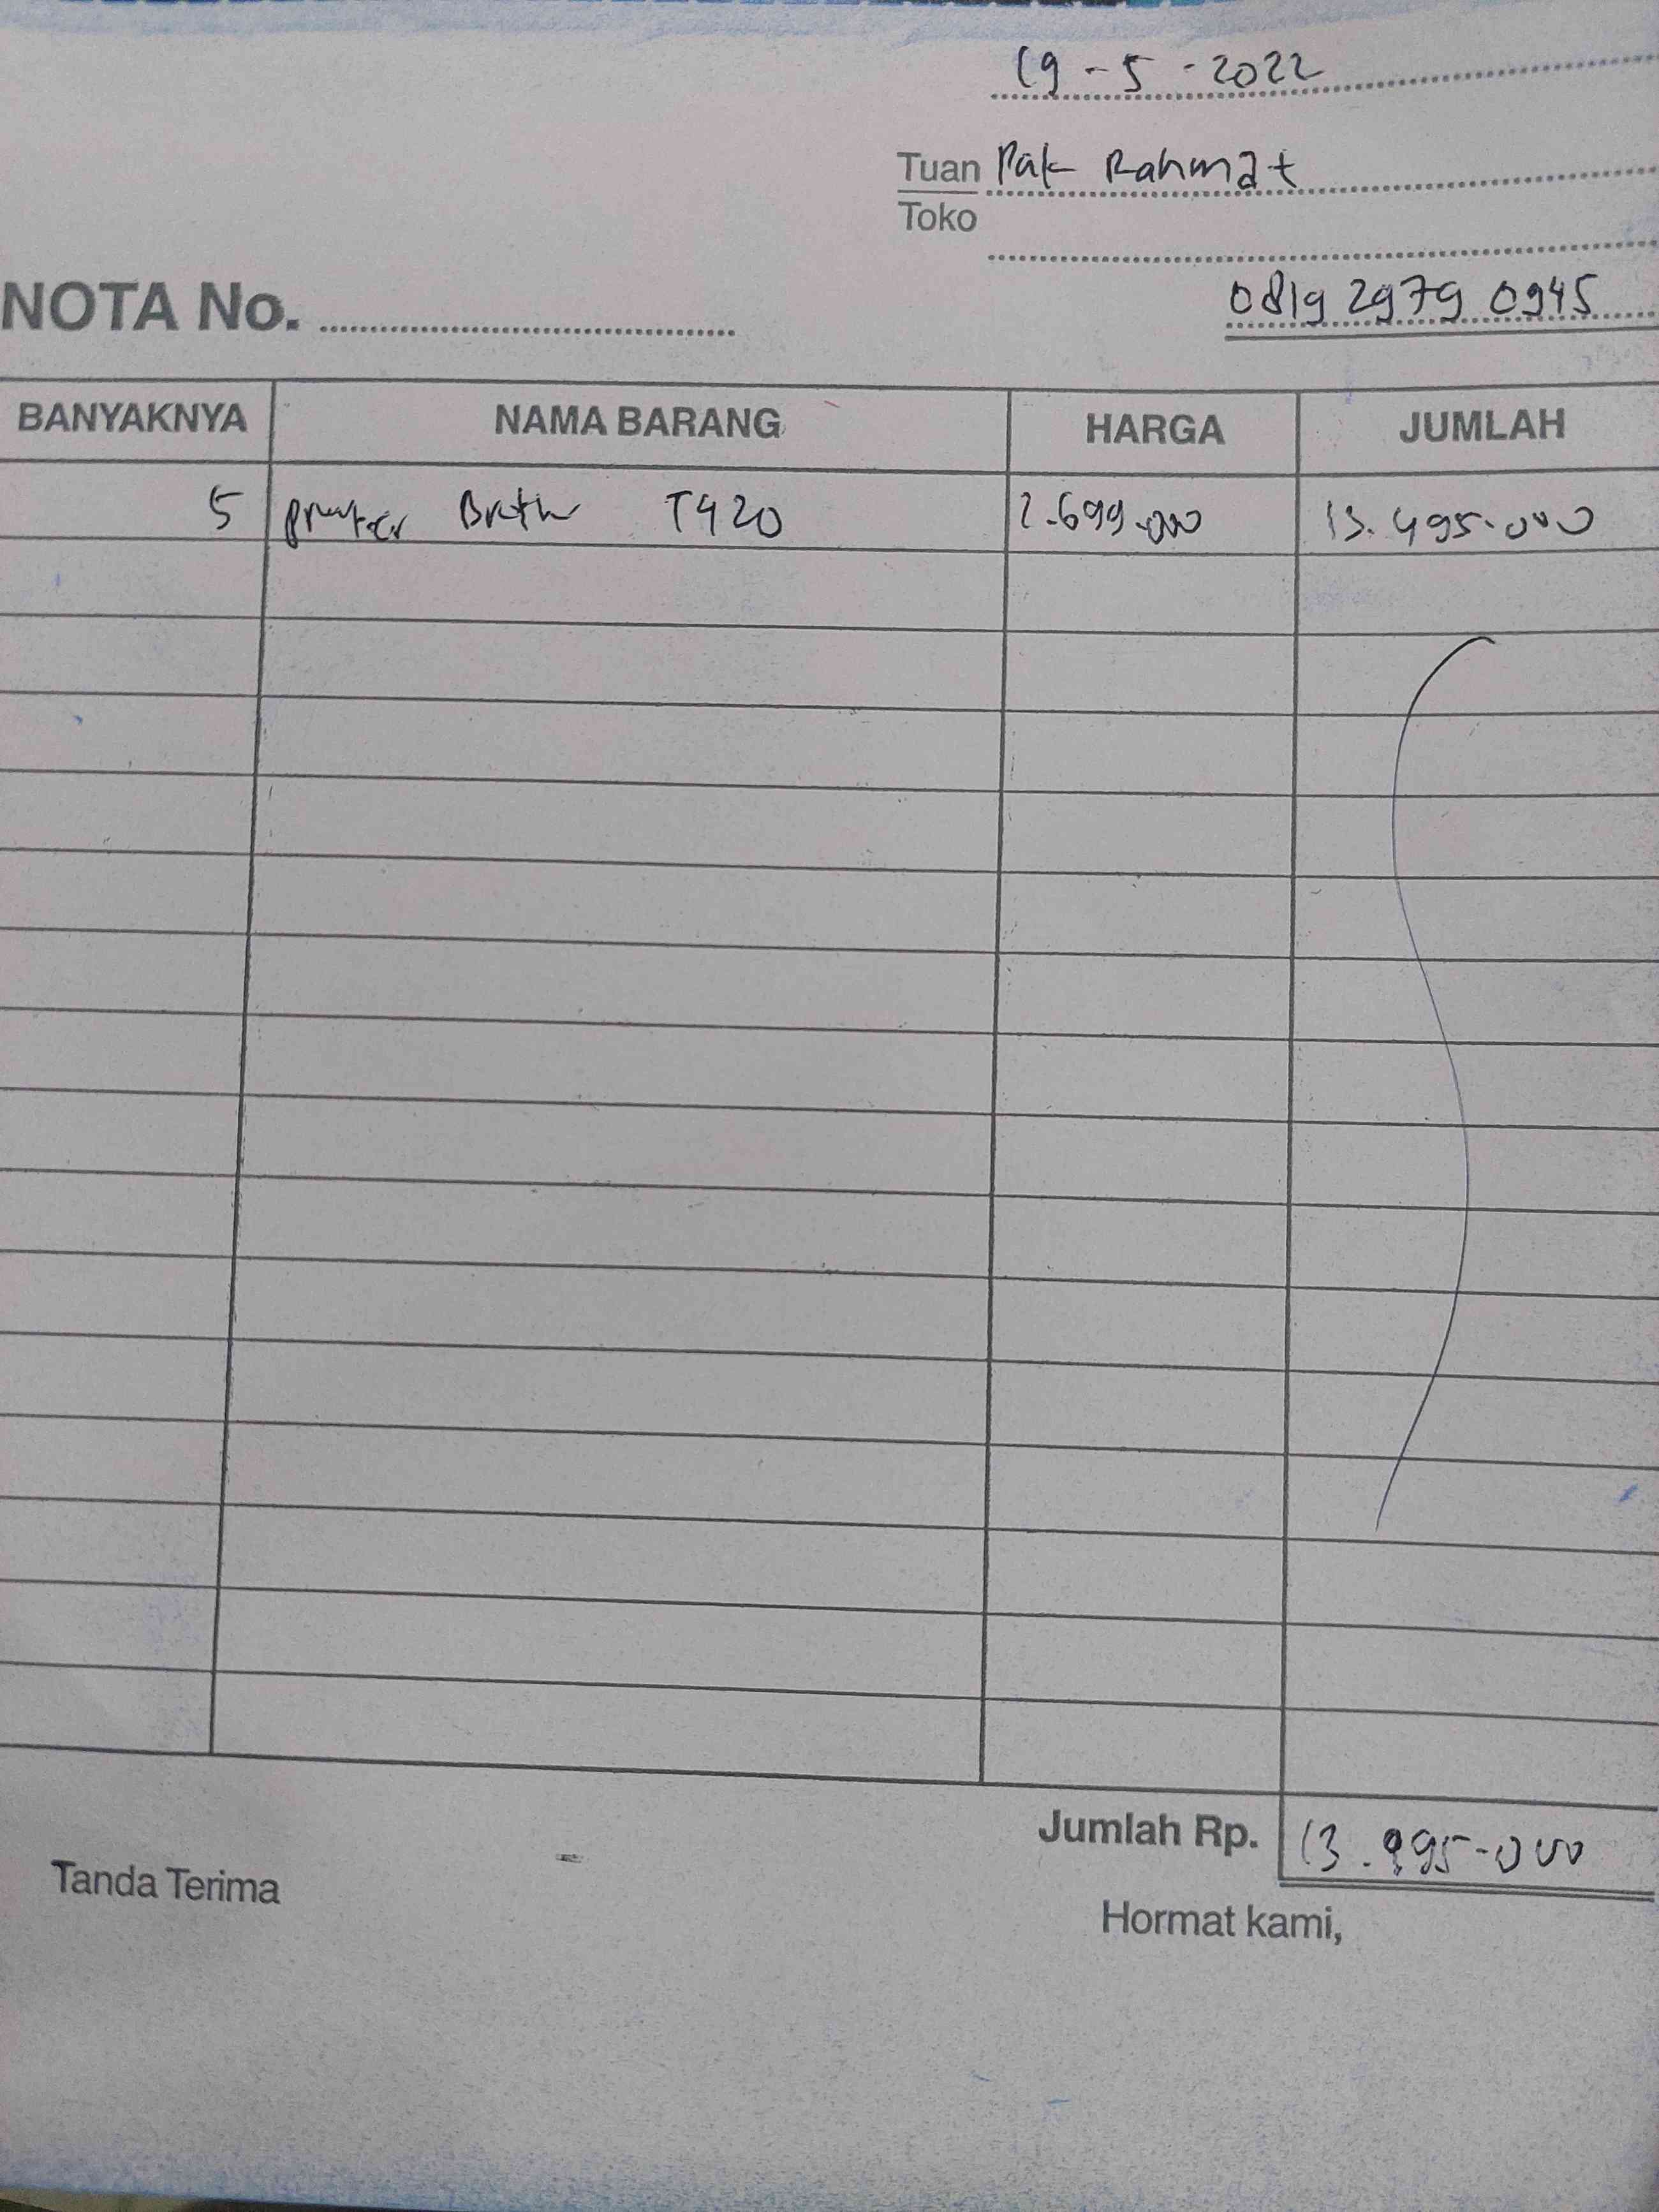 19-5-2022
Tuan Pak Rahmat
Toko
NOTA No. 0819 2979 0945
BANYAKNYA NAMA BARANG HARGA JUMLAH
5 printer Broth T420 2.699.000 13.495.000
Jumlah Rp. 13.495.000
Tanda Terima
Hormat kami,